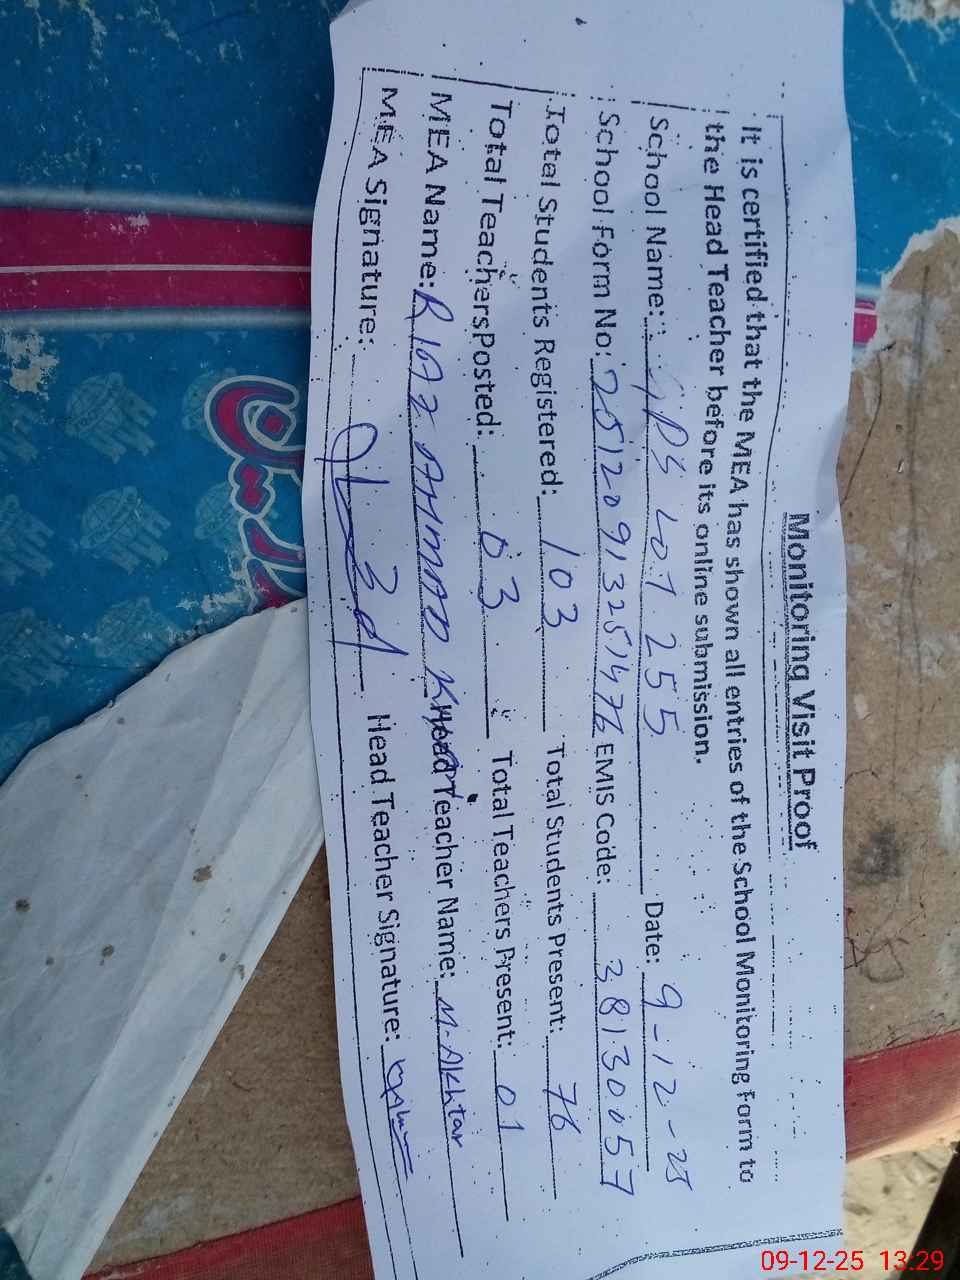 Monitoring Visit Proof
It is certified that the MEA has shown all entries of the School Monitoring Form to
the Head Teacher before its online submission.
School Name: GPS Lot 255 Date: 9-12-25
School Form No: EMIS Code: 38130057
Total Students Registered: 103 Total Students Present: 76
Total Teachers Posted: 03 Total Teachers Present: 01
MEA Name: RIAZ AHMAD KHAN Head Teacher Name: M. Akhtar
MEA Signature: Head Teacher Signature:
09-12-25 13:29